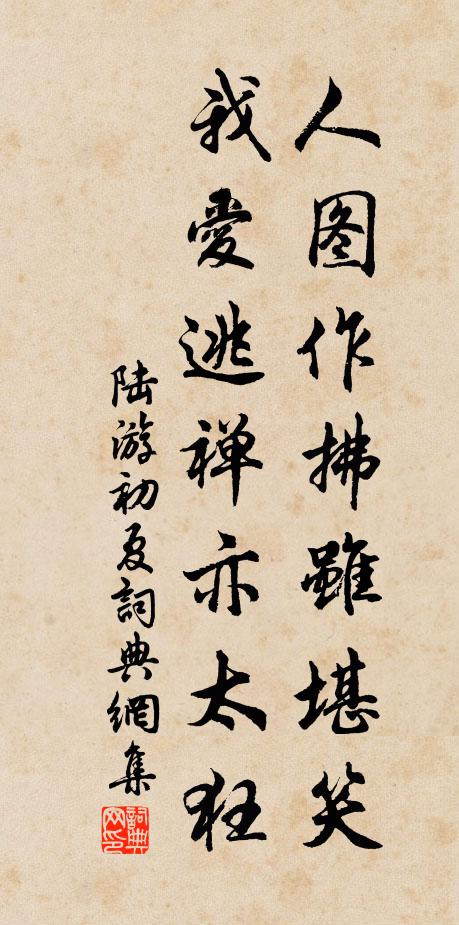 人图作拂雖堪笑
我愛逃禅亦太狂
陆游初夏詞典網集
詞典网印